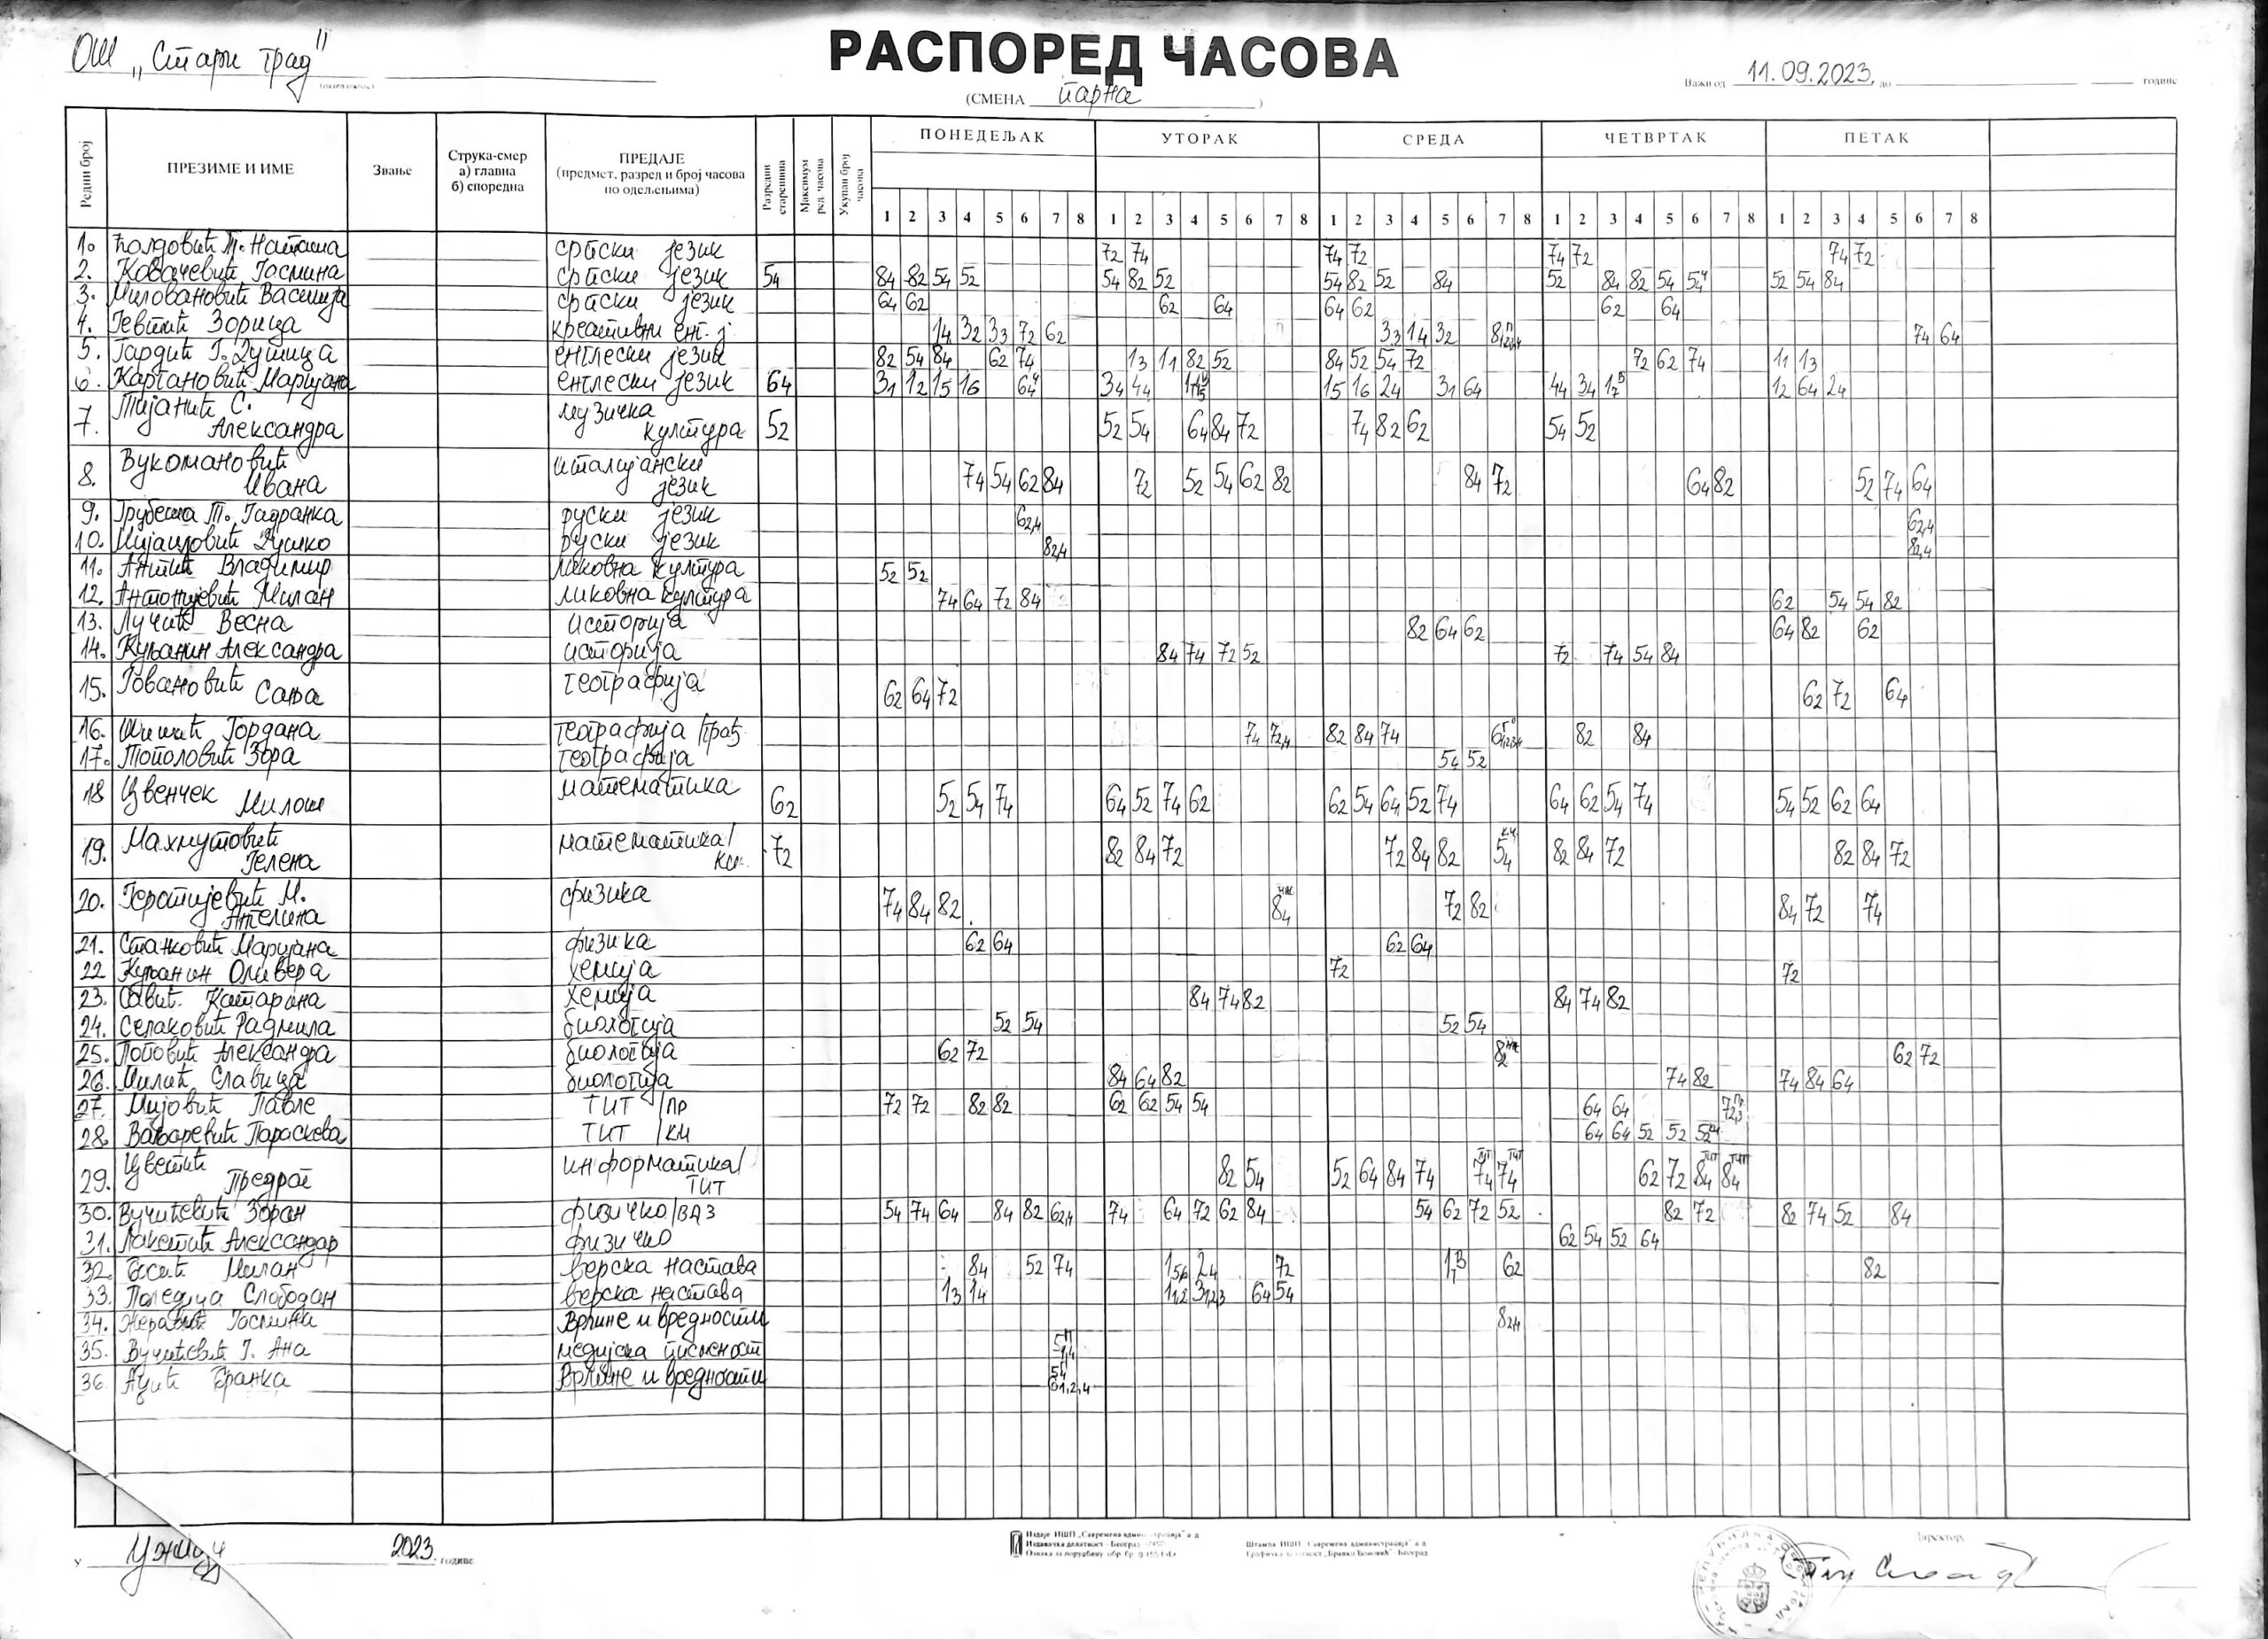 ОШ „Стари град"
РАСПОРЕД ЧАСОВА
(СМЕНА парна)
Важи од 11.09.2023. до године
Редни број ПРЕЗИМЕ И ИМЕ Звање Струка-смер а) главна б) споредна ПРЕДАЈЕ (предмет, разред и број часова по одељењима) Разредни старешина Максимум ред. часова Укупан број часова ПОНЕДЕЉАК УТОРАК СРЕДА ЧЕТВРТАК ПЕТАК
1 2 3 4 5 6 7 8 1 2 3 4 5 6 7 8 1 2 3 4 5 6 7 8 1 2 3 4 5 6 7 8 1 2 3 4 5 6 7 8
1. Наташа српски језик 72 74 74 72 74 72 74 72
2. Ковачевић Јасмина српски језик 54 84 82 54 52 54 82 52 54 82 52 84 52 84 82 54 52 54 84
3. Миловановић Василија српски језик 64 62 62 64 64 62 62 64
4. Јевтић Зорица креативни енг. ј. 14 32 33 72 62 33 14 32 74 64
5. Гардић Г. Душица енглески језик 82 54 84 62 74 13 11 82 52 84 52 54 72 72 62 74 11 13
6. Картановић Маријана енглески језик 64 31 12 15 16 64 34 44 15 16 24 31 64 44 34 12 64 24
7. Тијанић С. Александра музичка култура 52 52 54 64 84 72 74 82 62 54 52
8. Вукомановић Ивана италијански језик 74 54 62 84 72 52 54 62 82 84 72 64 82 52 74 64
9. Грубеша Т. Јадранка руски језик 62,4 62,4
10. Мијаиловић Душко руски језик 82,4 82,4
11. Антић Владимир ликовна култура 52 52
12. Антонијевић Милан ликовна култура 74 64 72 84 62 54 54 82
13. Лучић Весна историја 82 64 62 64 82 62
14. Куљанин Александра историја 84 74 72 52 72 74 54 84
15. Јовановић Сања географија 62 64 72 62 72 64
16. Шишић Гордана географија /грађ 74 72,4 82 84 74 82 84
17. Тополовић Зора географија 54 52
18 Цвенчек Милош математика 62 52 54 74 64 52 74 62 62 54 64 52 74 64 62 54 74 54 52 62 64
19. Махмутовић Јелена математика/ 72 82 84 72 72 84 82 54 82 84 72 82 84 72
20. Геротијевић М. Ангелина физика 74 84 82 84 72 82 84 72 74
21. Станковић Маријана физика 62 64 62 64
22 Куљанин Оливера хемија 72 72
23. Савић Катарина хемија 84 74 82 84 74 82
24. Селаковић Радмила биологија 52 54 52 54
25. Поповић Александра биологија 62 72 82 62 72
26. Милић Славица биологија 84 64 82 74 82 74 84 64
27. Мијовић Павле ТИТ /ПР 72 72 82 82 62 62 54 54 64 64
28. Параскева ТИТ /КМ 64 64 52 52
29. Цветић Предраг информатика/ТИТ 82 54 52 64 84 74 74 74 62 72 84 84
30. Вучићевић Зоран физичко/ВАЗ 54 74 64 84 82 62,4 74 64 72 62 84 54 62 72 52 82 72 82 74 52 84
31. Лакетић Александар физичко 62 54 52 64
32. Милан верска настава 84 52 74 24 72 62 82
33. Слободан верска настава 13 14 64 54
34. Јасмина Врлине и вредности 82,4
35. Вучићевић Ј. Ана медијска писменост
36. Аџић Бранка Врлине и вредности
У 2023. године
Директор